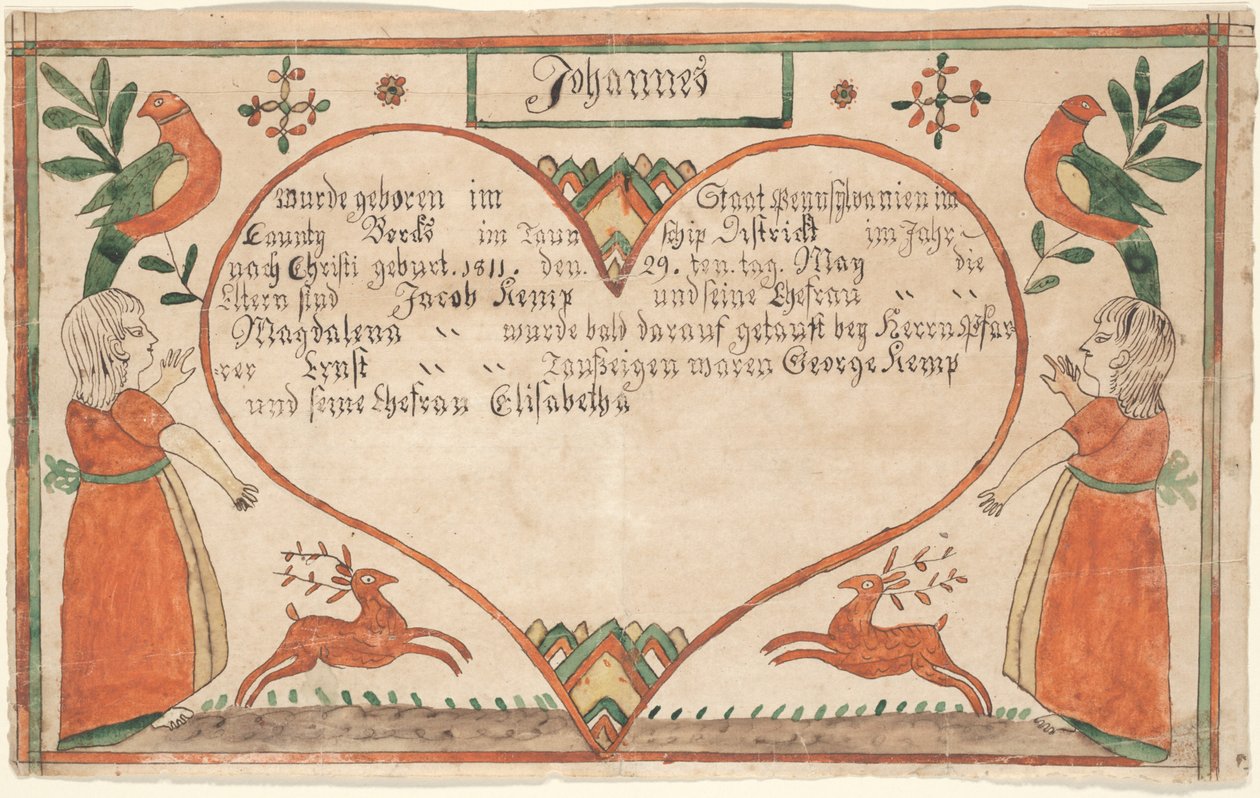 Johannes
Wurde geboren im Staat Pennsylvanien im
County Berks im Taun schip District im Jahr
nach Christi geburt. 1811. den. 29. ten. tag. May die
Eltern sind Jacob Kemp und seine Ehefrau " "
Magdalena " wurde bald darauf getauft bey Herrn Pfar
rer Ernst " " Taufzeigen waren George Kemp
und seine Ehefrau Elisabetha